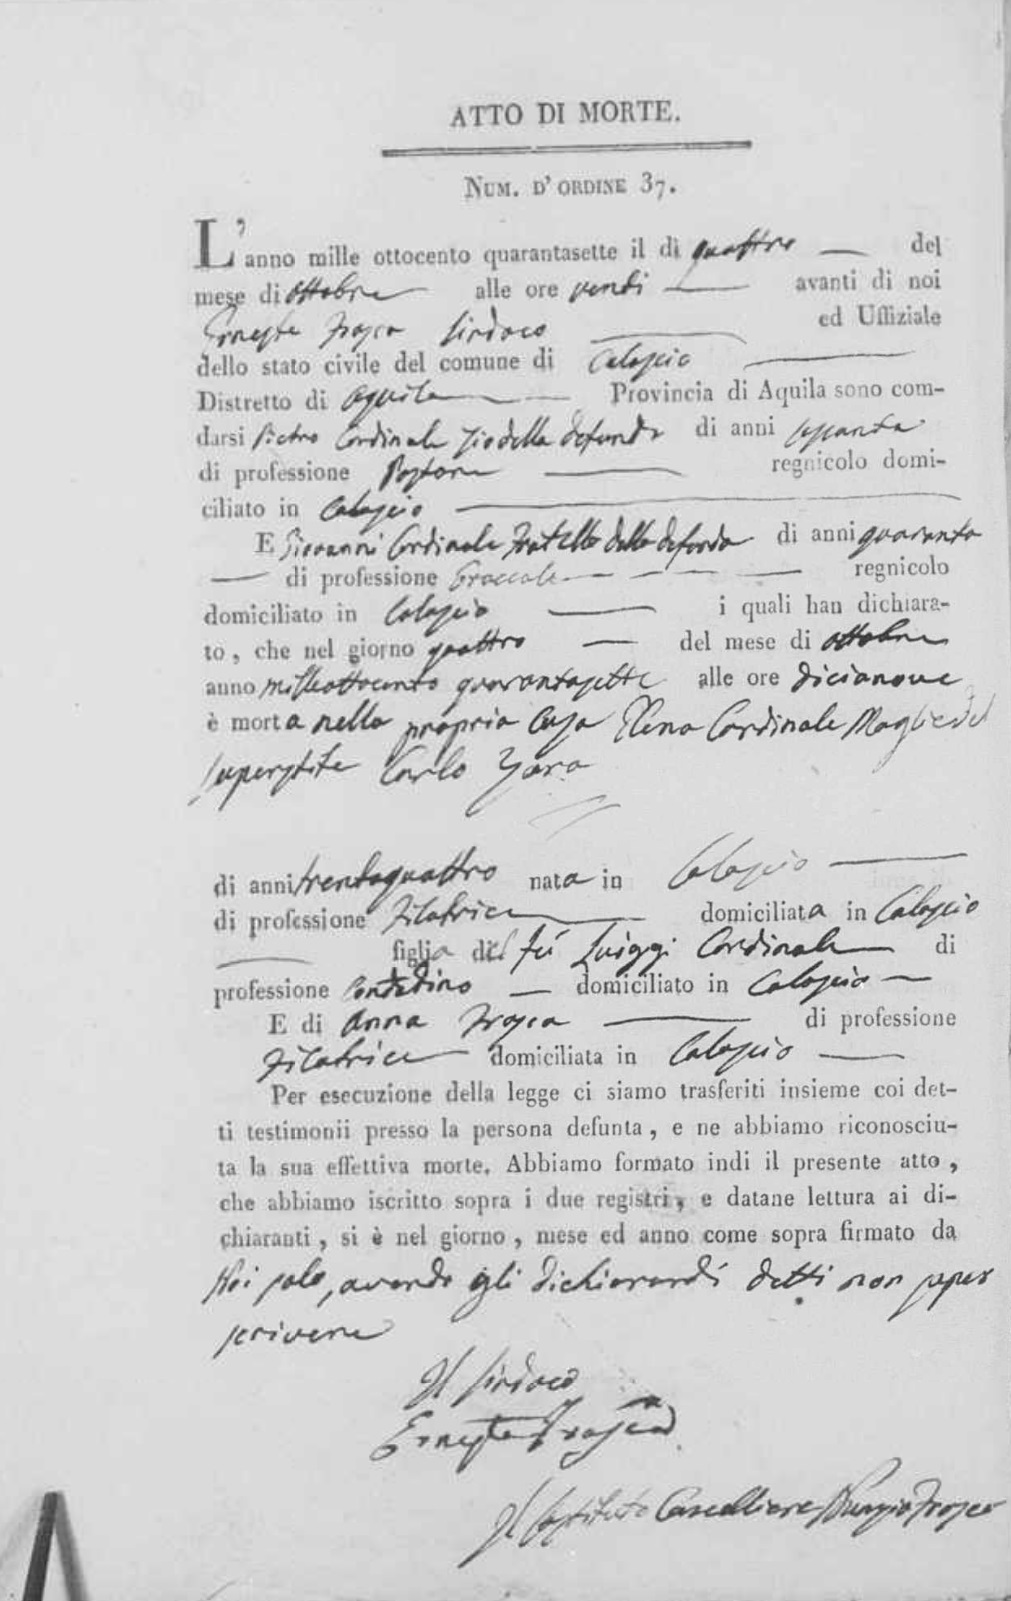 ATTO DI MORTE.
NUM. D' ORDINE 37.
L'anno mille ottocento quarantasette il dì quattro del
mese di ottobre alle ore venti avanti di noi
Erneste Frasca Sindaco ed Uffiziale
dello stato civile del comune di Calascio
Distretto di Aquila Provincia di Aquila sono com-
parsi Pietro Cardinale Zio della defunta di anni sessanta
di professione Pastore regnicolo domi-
ciliato in Calascio
E Giovanni Cardinale Fratello della defonta di anni quaranta
di professione regnicolo
domiciliato in Calascio i quali han dichiara-
to, che nel giorno quattro del mese di ottobre
anno milleottocento quarantasette alle ore dicianove
è morta nella propria casa Elena Cardinale Moglie del
superstite Carlo Zara
di anni trentaquattro nata in Calascio
di professione Filatrice domiciliata in Calascio
figlia del fú Luiggi Cardinale di
professione Contadino domiciliato in Calascio
E di Anna Frasca di professione
Filatrice domiciliata in Calascio
Per esecuzione della legge ci siamo trasferiti insieme coi det-
ti testimonii presso la persona defunta, e ne abbiamo riconosciu-
ta la sua effettiva morte. Abbiamo formato indi il presente atto,
che abbiamo iscritto sopra i due registri, e datane lettura ai di-
chiaranti, si è nel giorno, mese ed anno come sopra firmato da
Noi solo, avendo gli dichiaranti detti non saper
scrivere
Il Sindaco
Erneste Frasca
Il Sostituto Cancelliere Nunzio Frasca